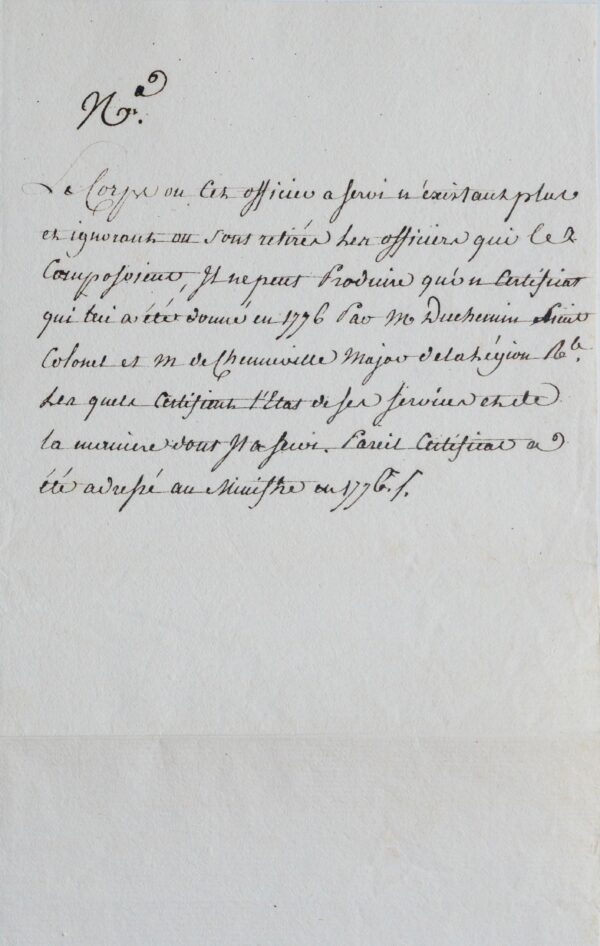 Na.
Le Corps ou Cet officier a servi n'existant plus
et ignorant ou sont retirés Les officiers qui le
Composoient, Il ne peut Produire qu'un Certificat
qui lui a été donné en 1776 Par M Duchemin Lieut
Colonel et M de Chenneville Major de la Légion Rle.
Les quels Certifient l'Etat de ses services et de
la maniere dont Il a servi. Pareil Certificat a
été adressé au Ministre en 1776.